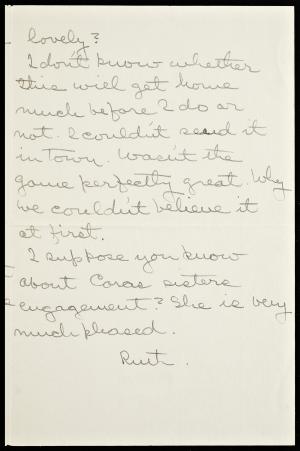 lovely?
I don't know whether
this will get home
much before I do or
not. I couldn't send it
in Town. Wasn't the
game perfectly great. Why
we couldn't believe it
at first.
I suppose you know
about Coras sisters
engagement? She is very
much pleased.
Ruth.